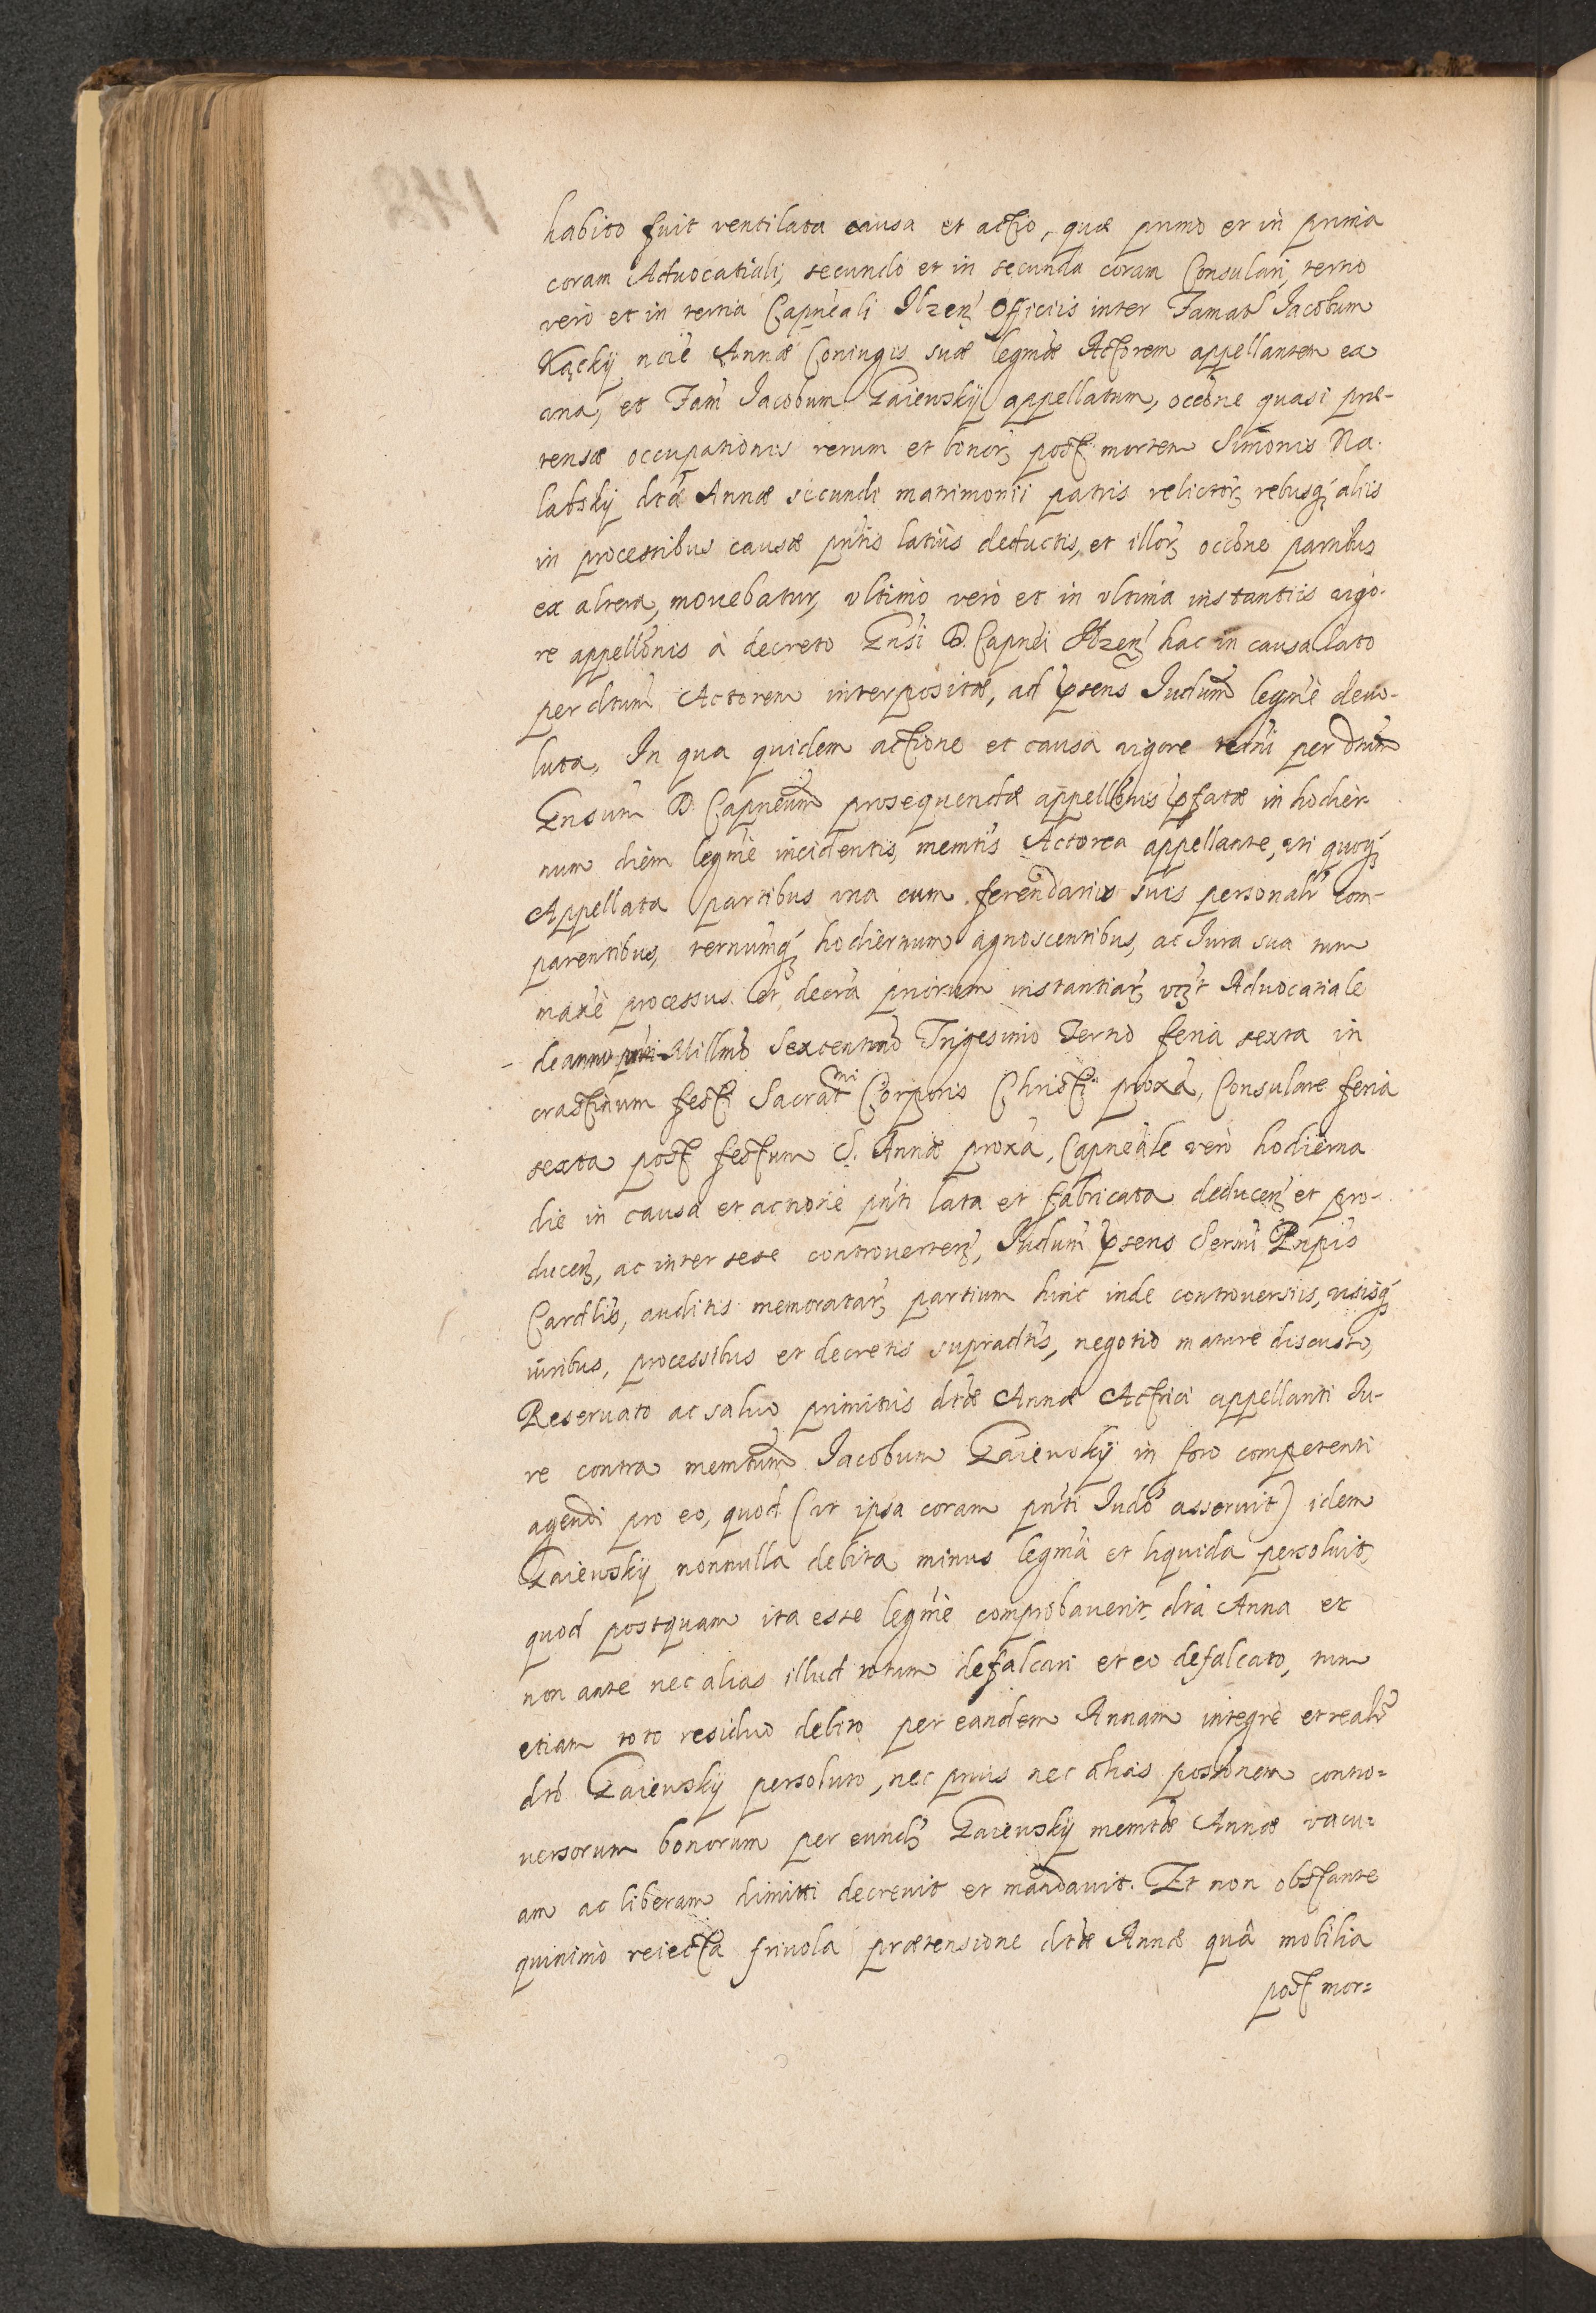 habito fuit ventilata causa et actio, quæ primo et in prima
coram Advocatiali, secundo et in secunda coram Consulari, tertio
verò et in tertia Capneali Ilzen Officiis inter Famat Iacobum
Kącky noie Annæ Coniugis suæ legmæ Actorem appellantem ex
una, et Fam Iacobum Gaiewskÿ appellatum, occone quasi præ-
tensæ occupationis rerum et bonorꝫ post mortem Simonis Na-
labskÿ dtæ Annæ secundi matrimonii patris relictorꝫ rebusqꝫ aliis
in processibus causæ pntis latius deductis, et illorꝫ occone partibus
ex altera, movebatur, ultimò verò et in ultima instantiis vigo-
re appellonis à decreto Gnsi D. Capnei Ilzen hac in causa lato
per dtum Actorem interpositæ, ad psens Iudum legmè devo-
luta, In qua quidem actione et causa vigore termi per dnum
Gnsum D. Capneum prosequendæ appellonis pfatæ in hodier-
num diem legmè incidentis, memtis Actorea appellante, uti quoqꝫ
Appellata partibus una cum ferendariis suis personalr com-
parentibus, ternumqꝫ hodiernum agnoscentibus, ac Iura sua tum
maxè processus et decra priorum instantiarꝫ vꝫt Advocatiale
de anno pnti Millmo Sexcentmo Trigesimo Tertio feria sexta in
crastinum festi Sacratmi Corporis Christi proxa, Consulare feria
sexta post festum S. Annæ proxa, Capneale verò hodierna
die in causa et actione pnti lata et fabricata deducen et pro-
ducen, ac inter sese controverten, Iudum psens Sermi Pnpis
Cardlis, auditis memoratarꝫ partium hinc inde controversiis, visisqꝫ
iuribus, processibus et decretis supradtis, negotio maturè discusso,
Reservato ac salvo primitus dtæ Annæ Actrici appellanti Iu-
re contra memtum Iacobum Gaiewskÿ in foro competenti
agendi pro eo, quod (ut ipsa coram pnti Iudo asseruit) idem
Gaiewskÿ nonnulla debita minus legma et liquida persoluit,
quod postquam ita esse legmè comprobaverit dta Anna et
non ante nec alias illud totum defalcari et eo defalcato, tum
etiam toto residuo debito per eandem Annam integrè et realr
dto Gaiewskÿ persoluto, nec prius nec alias postonem contro=
versorum bonorum per eund Gaiewskÿ memtæ Annæ vacu=
am ac liberam dimitti decrevit et mandavit. Et non obstante
quinimò reiecta frivola prætensione dtæ Annæ quâ mobilia
post mor=